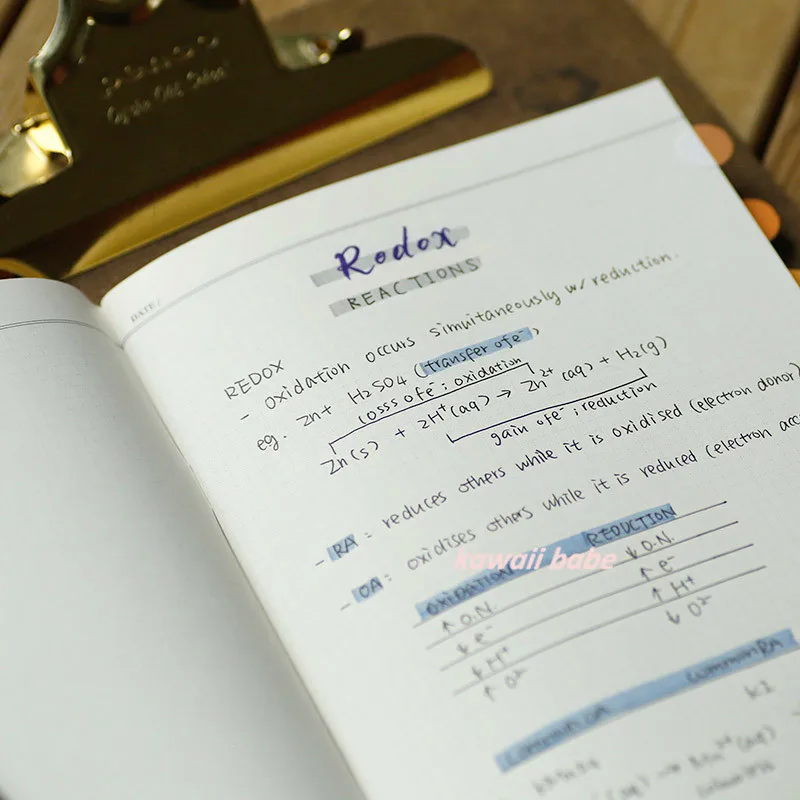 DATE/
Redox
REACTIONS
REDOX
- oxidation occurs simultaneously w/ reduction.
eg. Zn + H2SO4 (transfer of e⁻)
losss of e⁻ : oxidation
Zn(s) + 2H⁺(aq) → Zn²⁺(aq) + H2(g)
gain of e⁻ ; reduction
- RA : reduces others while it is oxidised (electron donor)
- OA : oxidises others while it is reduced (electron acc
kawaii babe
OXIDATION REDUCTION
↑ O.N. ↓ O.N.
↓ e⁻ ↑ e⁻
↓ H⁺ ↑ H⁺
↑ O²⁻ ↓ O²⁻
common OA common RA
KI
(aq) → Mn²⁺(aq)